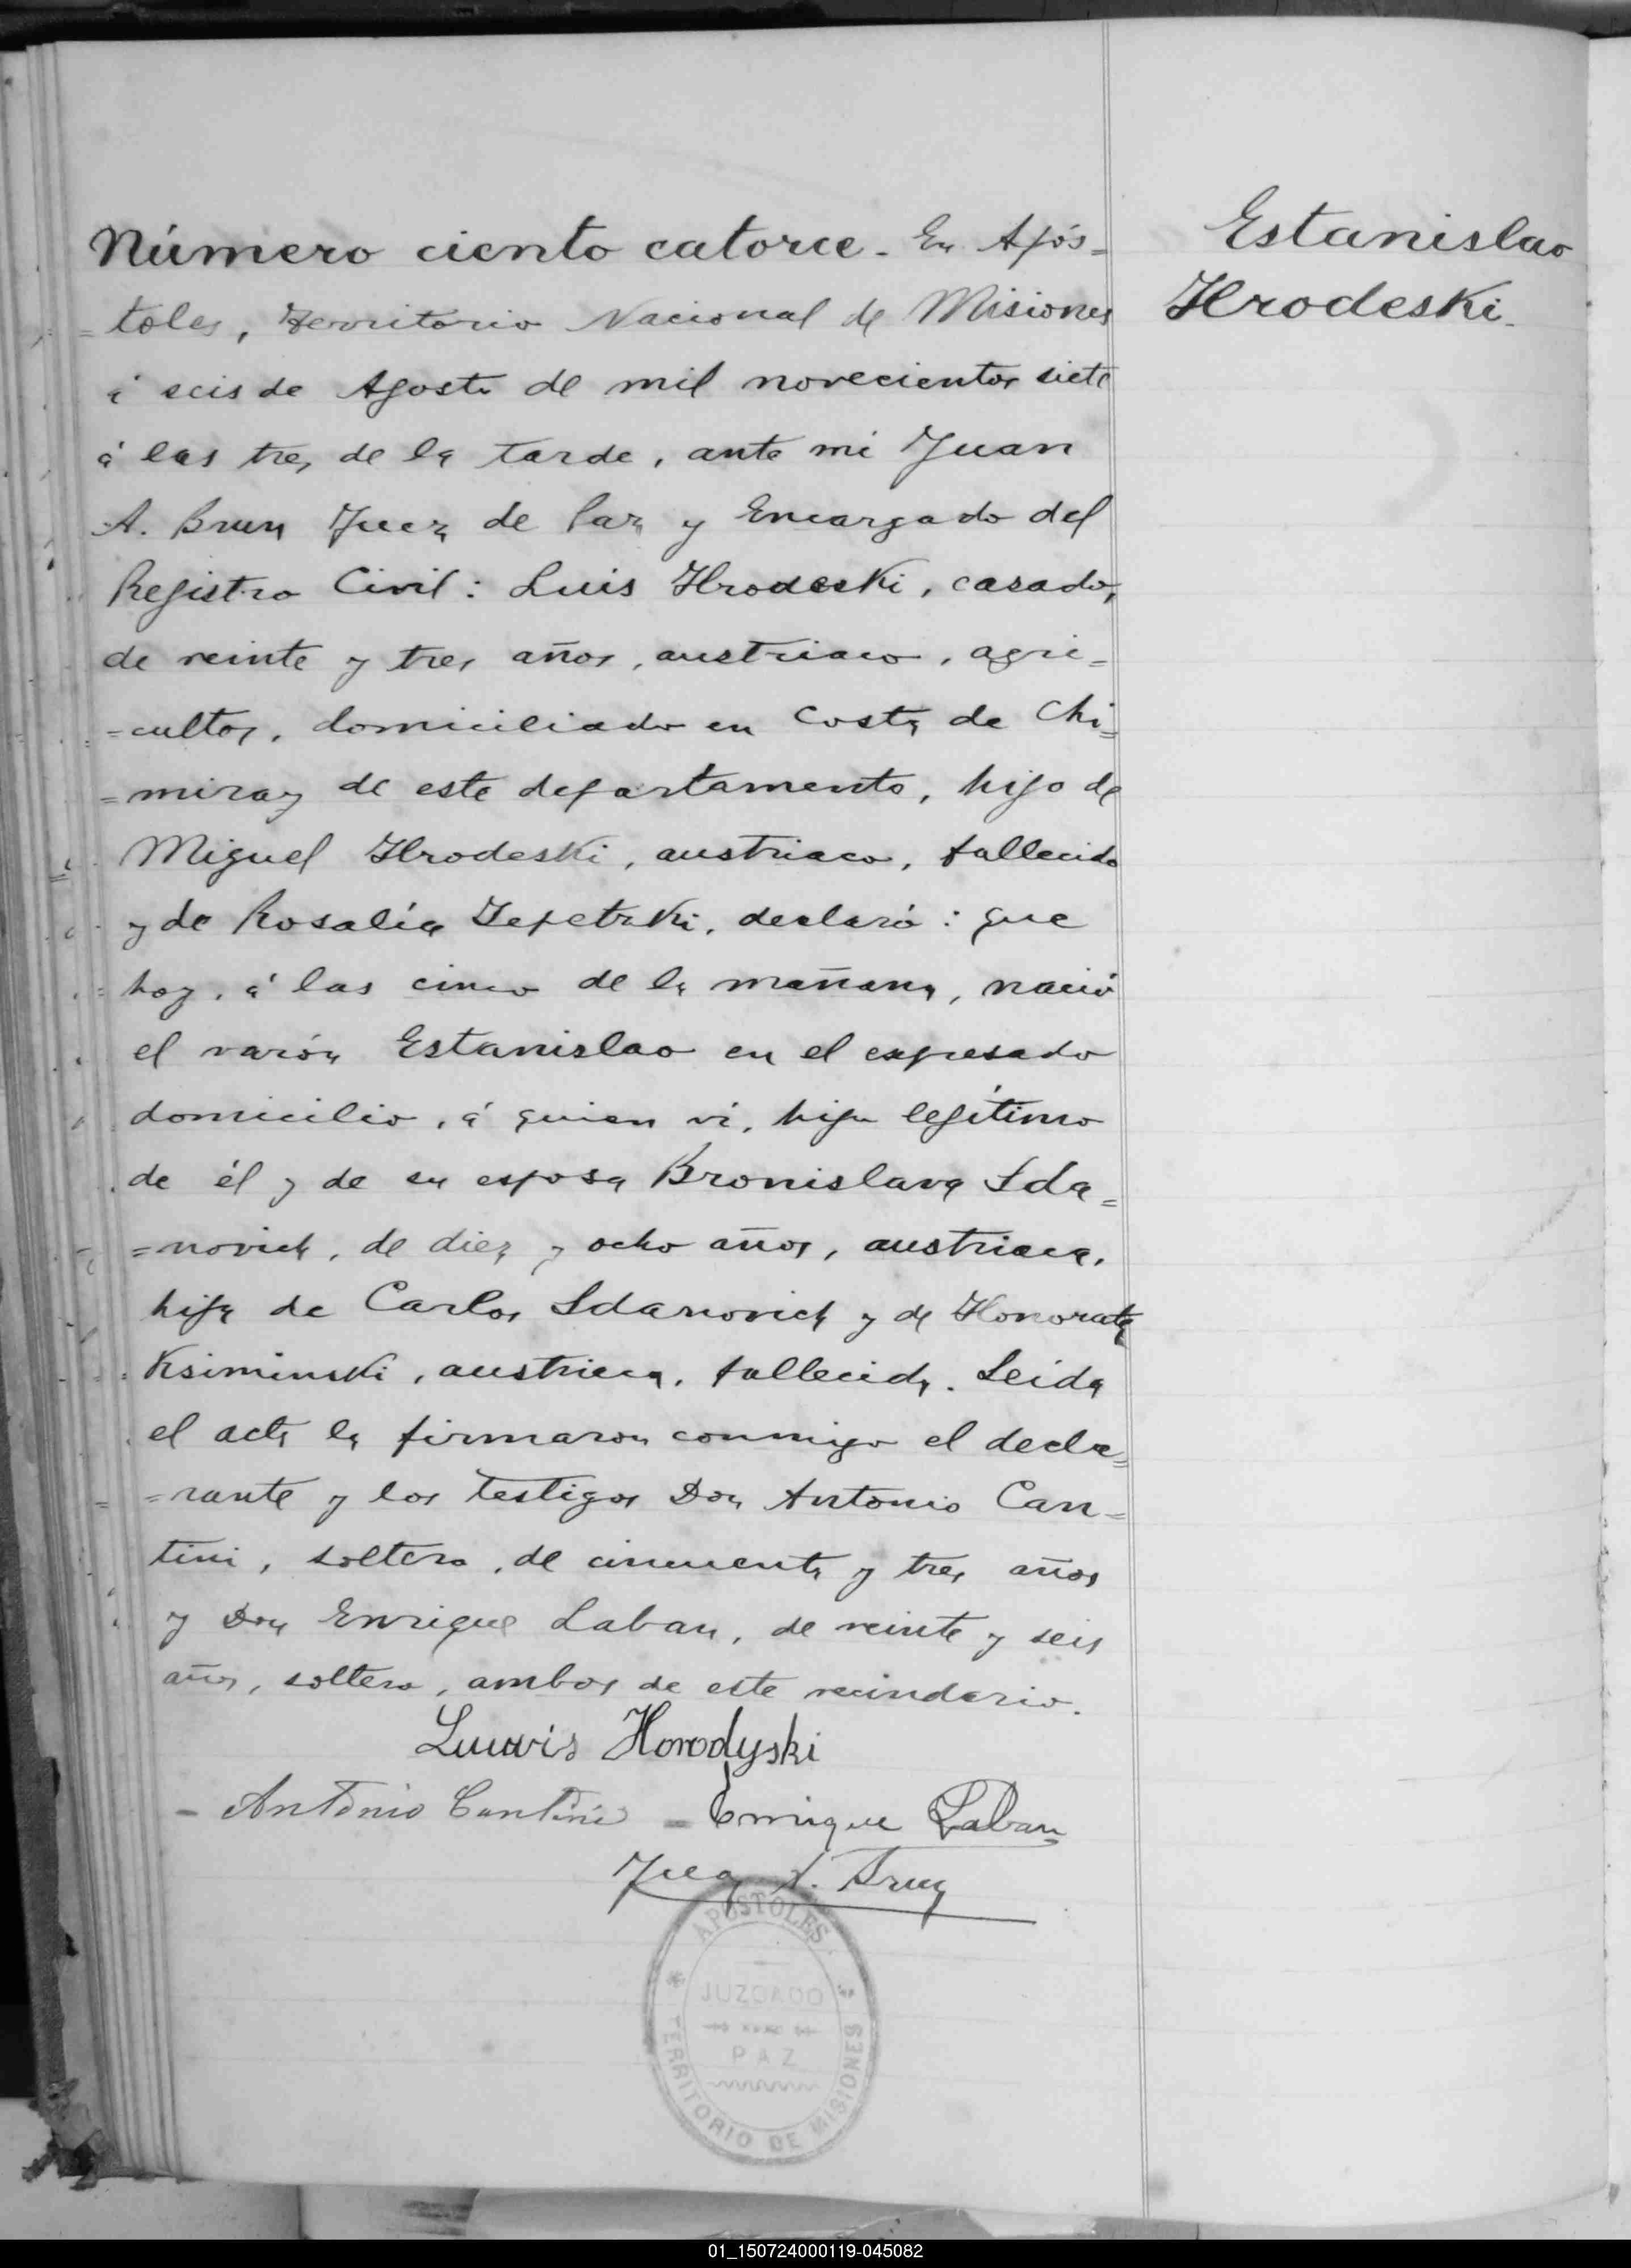 Número ciento catorce. En Após=
=toles, Territorio Nacional de Misiones
á seis de Agosto de mil novecientos siete
á las tres de la tarde, ante mi Juan
A. Brun Juez de Paz y Encargado del
Registro Civil: Luis Hrodeski, casado,
de veinte y tres años, austriaco, agri=
=cultor, domiciliado en Costa de Chi=
=miray de este departamento, hijo de
Miguel Hrodeski, austriaco, fallecido
y de Rosalía Sepetzki, declaró: que
hoy, á las cinco de la mañana, nació
el varón Estanislao en el expresado
domicilio, á quien vi, hijo legítimo
de él y de su esposa Bronislava Sda=
=novich, de diez y ocho años, austriaca,
hija de Carlos Sdanovich y de Honorata
Ksiminski, austriaca, fallecida. Leída
el acta la firmaron conmigo el decla=
=rante y los testigos Don Antonio Can=
tini, soltero, de cincuenta y tres años
y Don Enrique Laban, de veinte y seis
años, soltero, ambos de este vecindario.
Luwis Horodyski
- Antonio Cantini - Enrique Laban
Juan A. Brun
Estanislao
Hrodeski.
APOSTOLES
JUZGADO
PAZ
TERRITORIO DE MISIONES
01_150724000119-045082